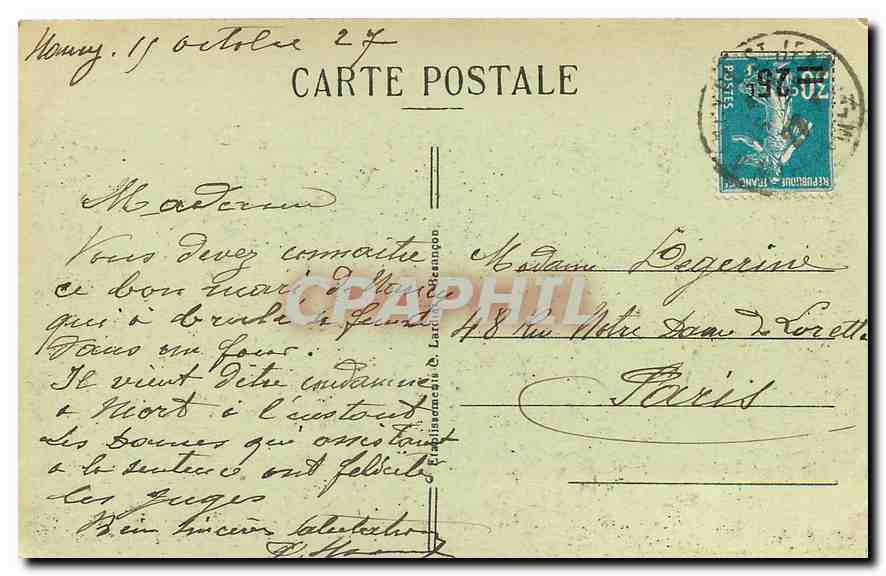 Nancy. 15 octobre 27
CARTE POSTALE
25c
30
POSTES
REPUBLIQUE FRANCAISE
Madame
Vous devez connaitre
ce bon mari de Nancy
qui à brulé sa femme
dans un four.
Il vient d'être condamné
a Mort à l'instant
Les Dames qui assistaient
a la sentence ont félicité
les juges
Bien sincères salutations
Etablissements C. Lardier, Besançon
Madame Degerine
48 Rue Notre Dame de Lorette
Paris
CPAPHIL